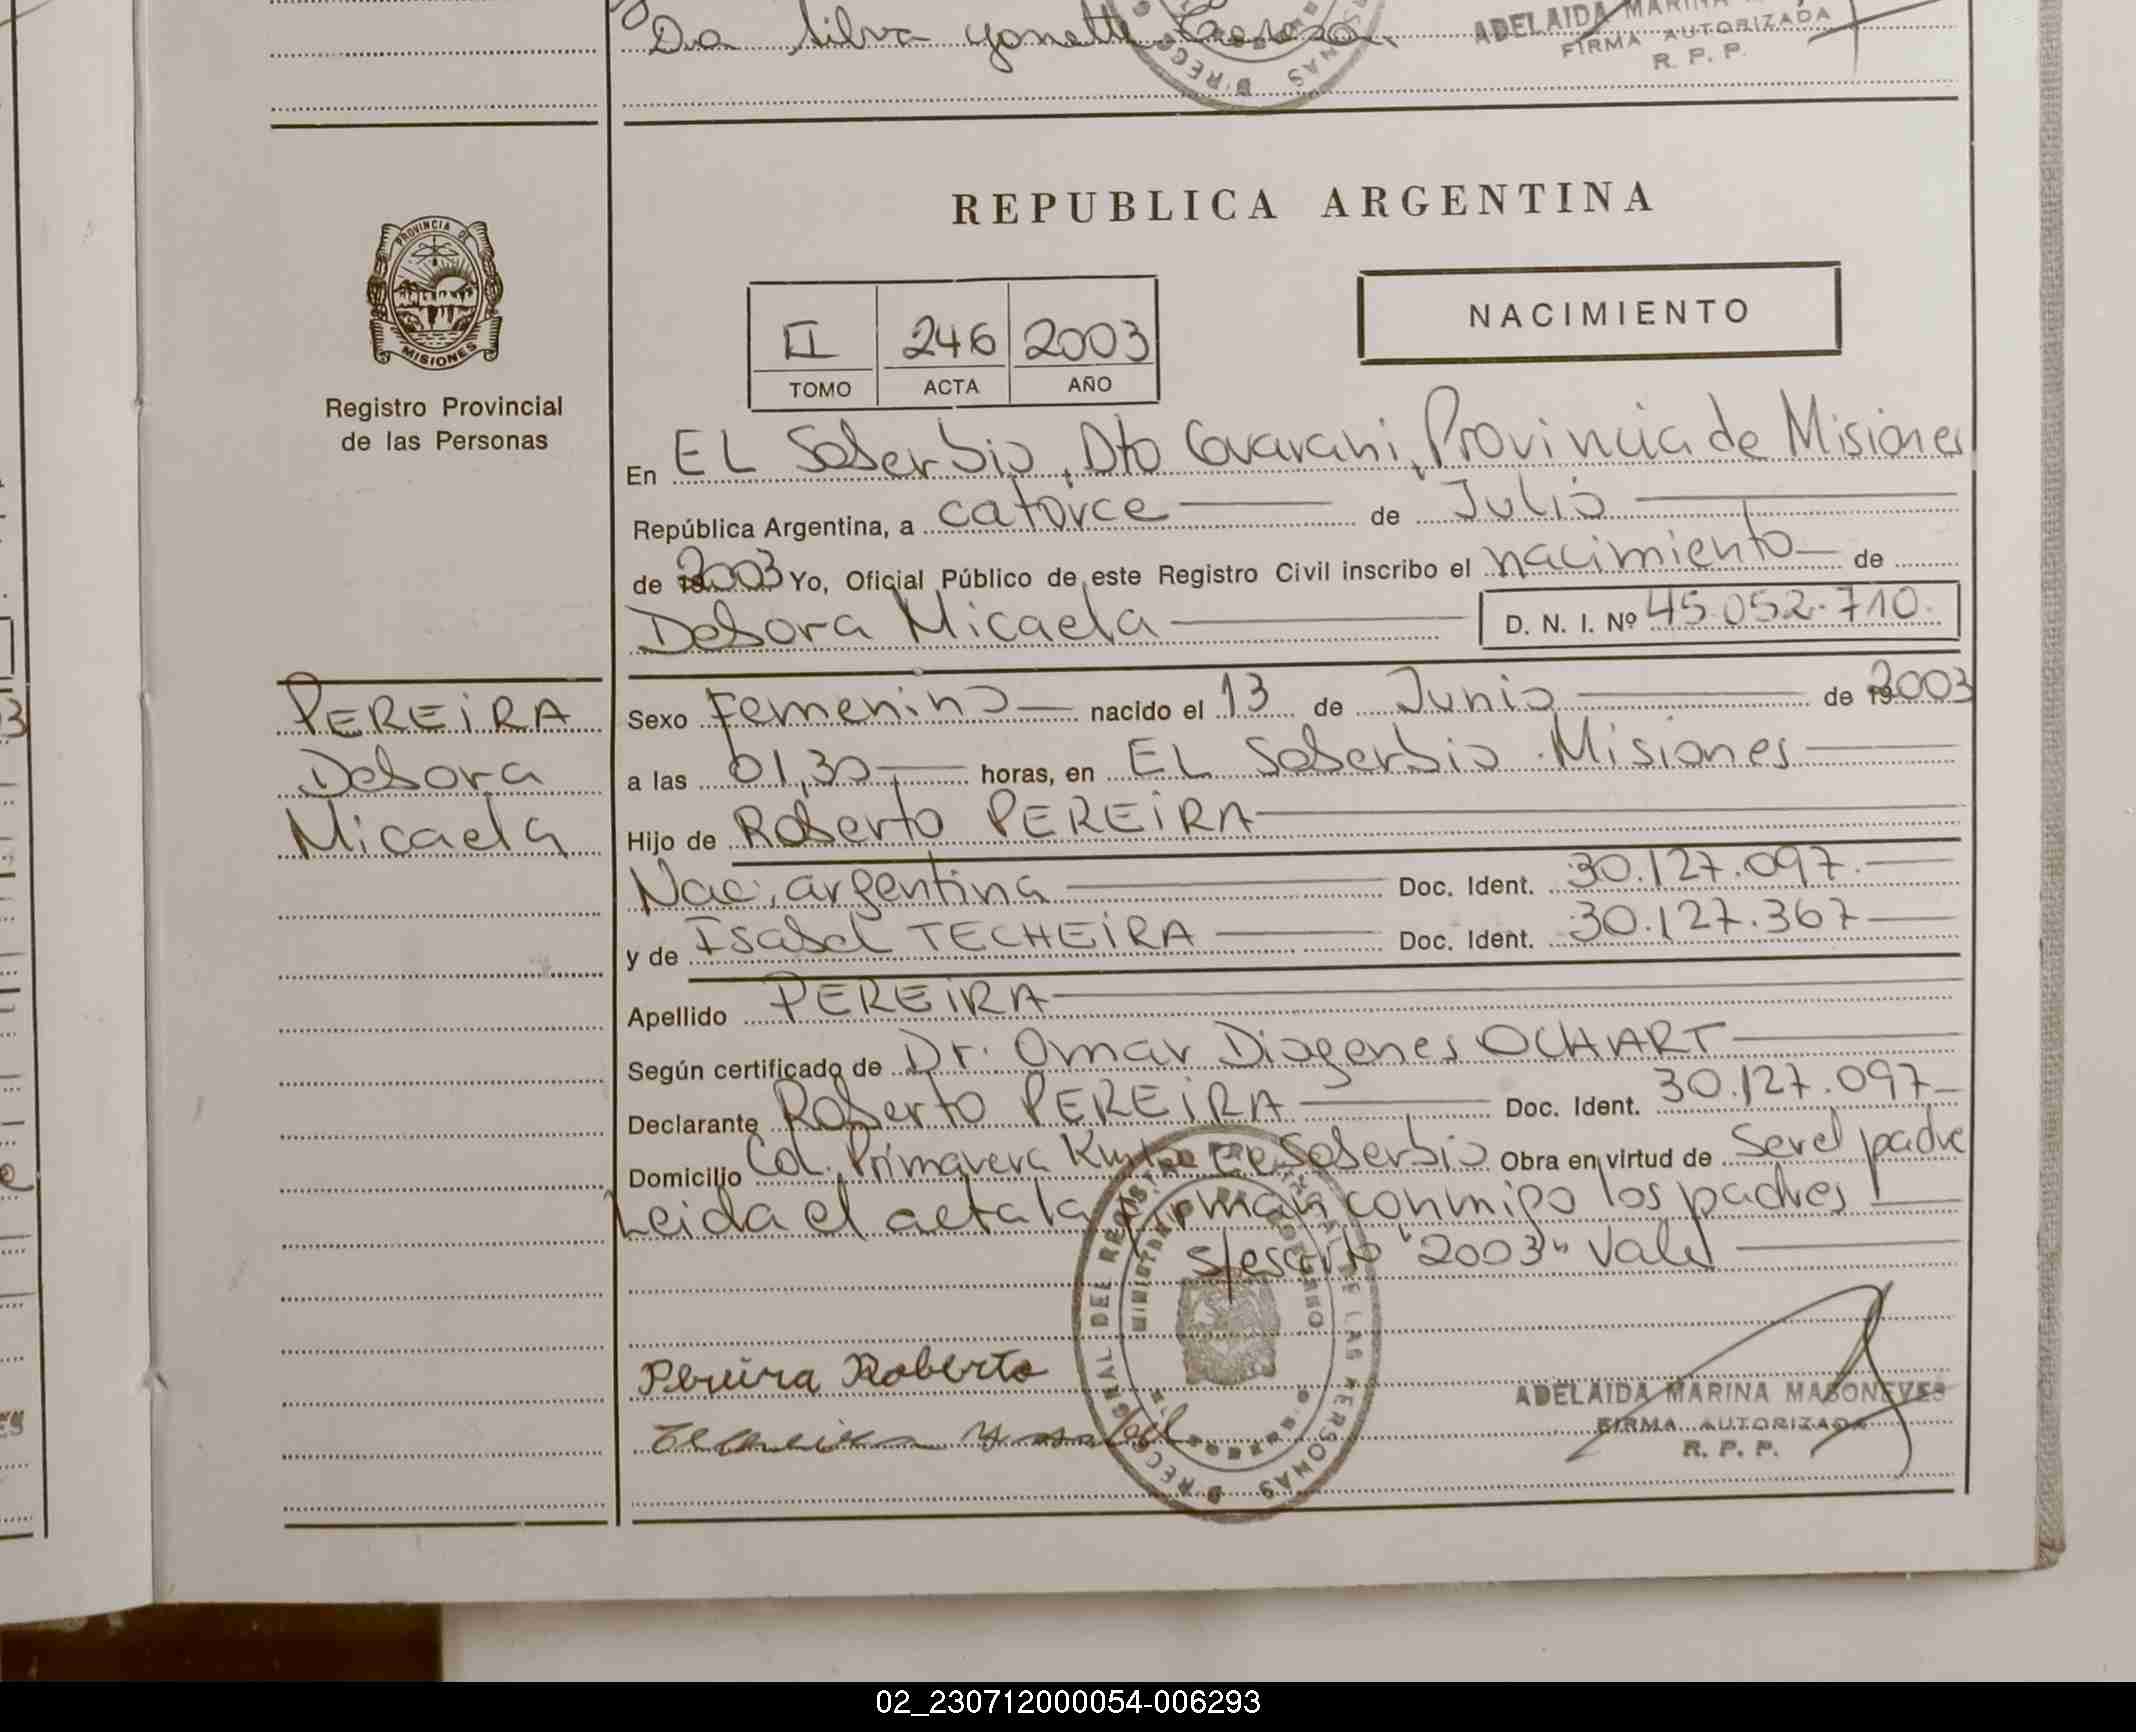 Da Silva Yonatt
ADELAIDA MARINA
FIRMA AUTORIZADA
R. P. P.
REPUBLICA ARGENTINA
PROVINCIA DE
MISIONES
Registro Provincial
de las Personas
II 246 2003
TOMO ACTA AÑO
NACIMIENTO
En EL Soberbio, Dto Guarani, Provincia de Misiones
República Argentina, a catorce de Julio
de 2003 Yo, Oficial Público de este Registro Civil inscribo el nacimiento de
Debora Micaela D. N. I. Nº 45.052.710.
PEREiRA
Debora
Micaela
Sexo Femenino nacido el 13 de Junio de 2003
a las 01,30 horas, en EL Soberbio. Misiones
Hijo de Roberto PEREiRA
Nac. argentina Doc. Ident. 30.127.097.
y de Isabel TECHEiRA Doc. Ident. 30.127.367
Apellido PEREiRA
Según certificado de Dr. Omar Diogenes OCHART
Declarante Roberto PEREiRA Doc. Ident. 30.127.097
Domicilio Col. Primavera Soberbio Obra en virtud de Ser el padre
Leida el acta la firman conmigo los padres
s/escrito "2003" Vale
Pereira Roberto
ADELAIDA MARINA MASONEVES
FIRMA AUTORIZADA
R. P. P.
02_230712000054-006293